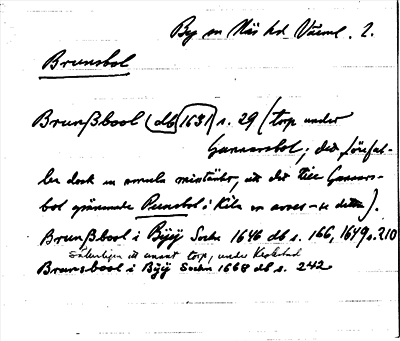 By sn Näs hd Värml. 2.
Brunsbol
Brunßbool (db 1631 s. 29 (torp under
Gunnarsbol; det förefal-
ler dock en smula misstänkt, att det till Gunnars-
bol gränsande Punsbol i Kila sn avses i detta).
Brunßbool i Byÿ Sochn 1646 db s. 166, 1649 s. 210
Säkerligen ett annat torp, under
Brunsbool i Bÿÿ Sochn 1668 db s. 242